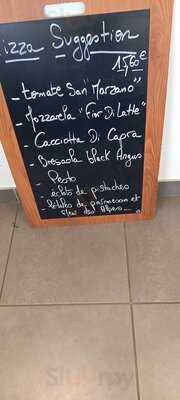 izza Suggestion
15,60 €
- tomate San "Marzano"
- Mozzarela "Fior Di Latte"
- Cacciotta Di Capra
- Bresaola black Angus
- Pesto
- éclats de pistaches
- Pétales de parmesan et